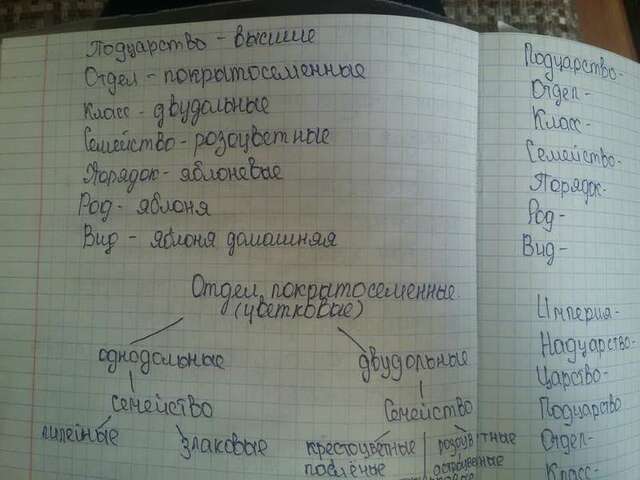 Подцарство - высшие
Отдел - покрытосеменные
Класс - двудольные
Семейство - розоцветные
Порядок - яблоневые
Род - яблоня
Вид - яблоня домашняя
Отдел покрытосеменные
(цветковые)
однодольные двудольные
семейство Семейство
лилейные злаковые крестоцветные розоцветные
паслёные
Подцарство-
Отдел-
Класс-
Семейство-
Порядок-
Род-
Вид-
Империя-
Надцарство-
Царство-
Подцарство
Отдел-
Класс-